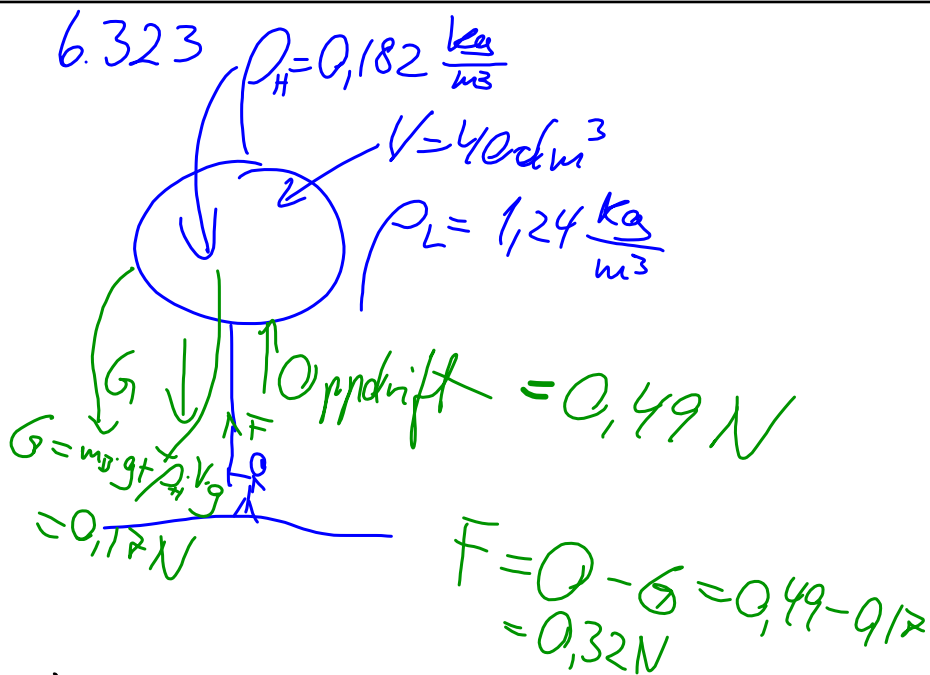 6.323 ρ_H = 0,182 kg/m³
V = 40 dm³
ρ_L = 1,24 kg/m³
G
Oppdrift = 0,49 N
F
G = m_B·g + ρ_H·V·g
= 0,17 N
F = O - G = 0,49 - 0,17
= 0,32 N